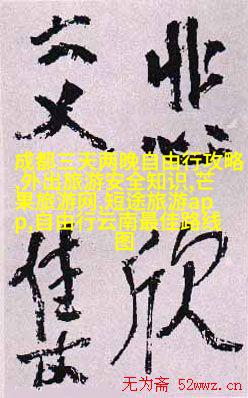 悲欣
交集
成都三天两晚自由行攻略
,外出旅游安全知识,芒
果旅游网,短途旅游ap
p,自由行云南最佳路线
图
无为斋 52wwz.cn